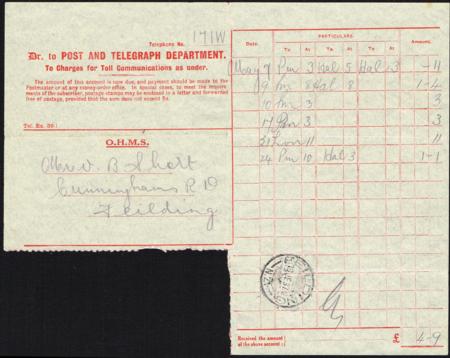 Telephone No. 171W
Dr. to POST AND TELEGRAPH DEPARTMENT.
To Charges for Toll Communications as under.
The amount of this account is now due, and payment should be made to the
Postmaster or at any money-order office. In special cases, to meet the require-
ments of the subscriber, postage stamps may be enclosed in a letter and forwarded
free of postage, provided that the sum does not exceed 5s.
Tel. Ex. 30.]
O.H.M.S.
B Short
Cunninghams R D
Feilding
Date. PARTICULARS. Amount.
To At To At To At
May 7 Pm 3 Hal 5 Hal 3 - 11
9 8 1-4
10 3 3
17 3 3
21 11 11
24 Pm 10 Hal 3 1-1
FEILDING
N.Z.
Received the amount
of the above account: £ 4-9